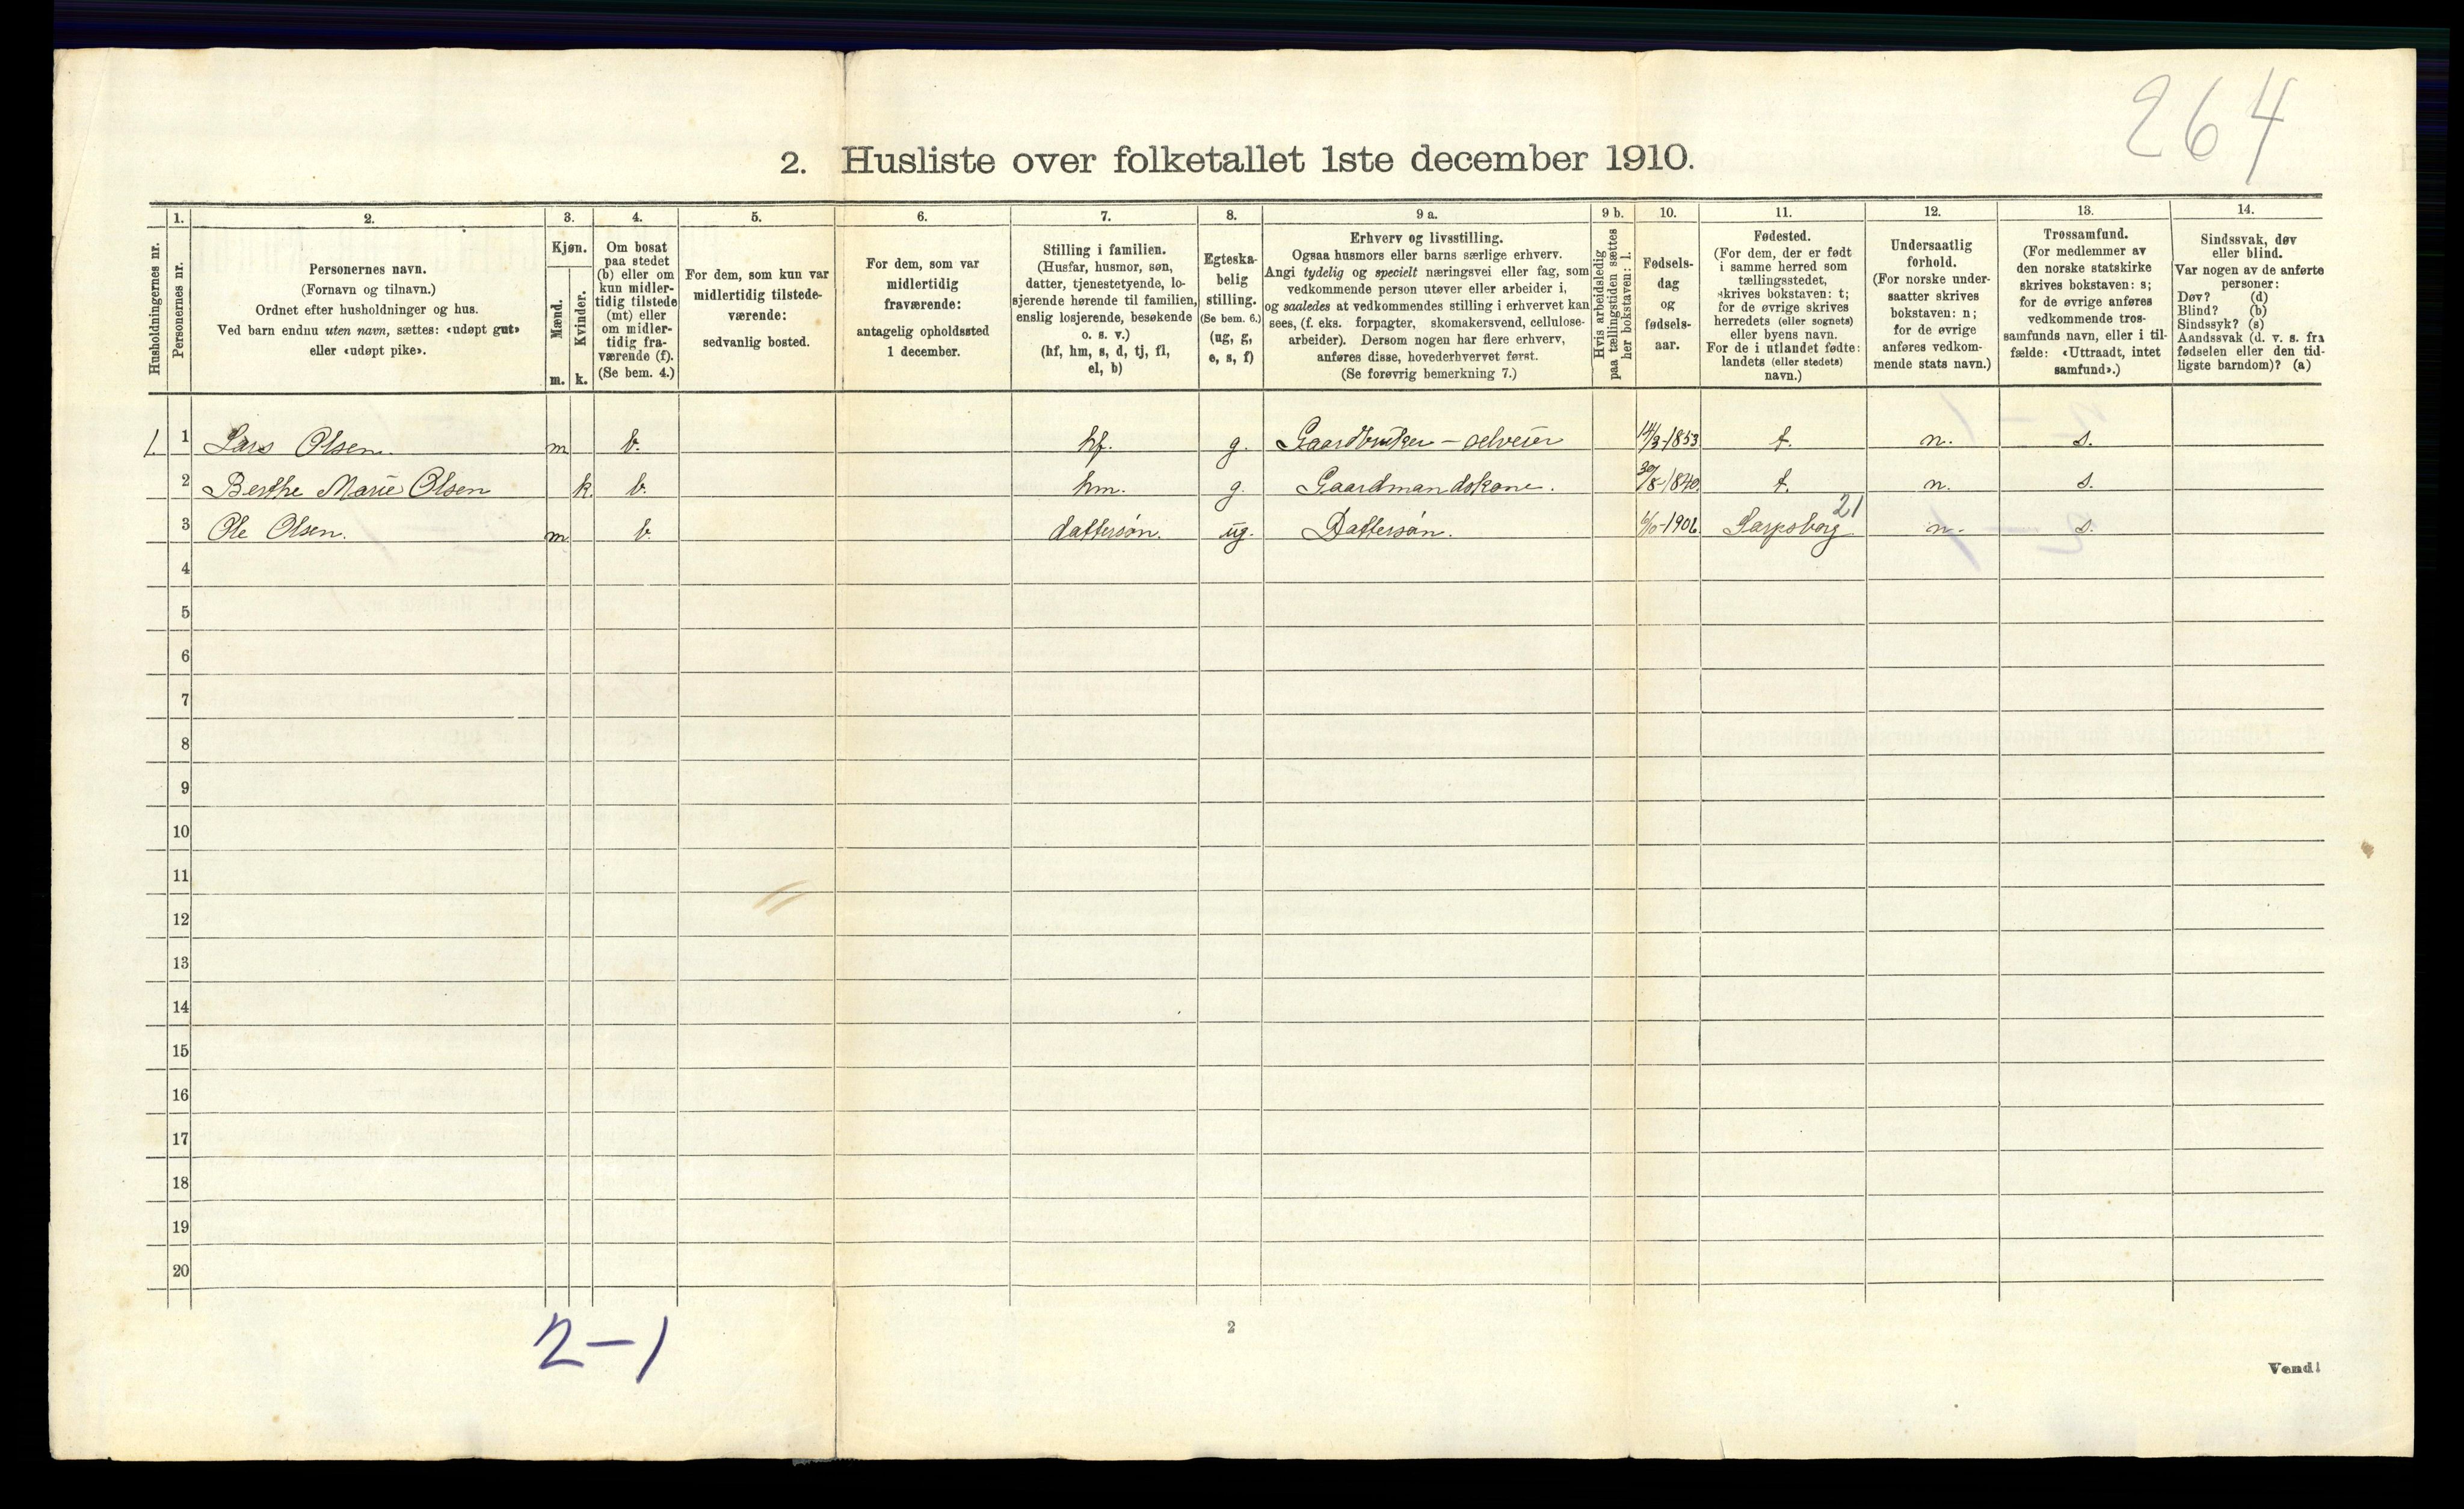 264
2. Husliste over folketallet 1ste december 1910.
Husholdningernes nr.
1.
Personernes nr.
2.
Personernes navn.
(Fornavn og tilnavn.)
Ordnet efter husholdninger og hus.
Ved barn endnu uten navn, sættes: «udøpt gut»
eller «udøpt pike».
3.
Kjøn.
Mænd.
Kvinder.
m. k.
4.
Om bosat
paa stedet
(b) eller om
kun midler-
tidig tilstede
(mt) eller
om midler-
tidig fra-
værende (f).
(Se bem. 4.)
5.
For dem, som kun var
midlertidig tilstede-
værende:
sedvanlig bosted.
6.
For dem, som var
midlertidig
fraværende:
antagelig opholdssted
1 december.
7.
Stilling i familien.
(Husfar, husmor, søn,
datter, tjenestetyende, lo-
sjerende hørende til familien,
enslig losjerende, besøkende
o. s. v.)
(hf, hm, s, d, tj, fl,
el, b)
8.
Egteska-
belig
stilling.
(Se bem. 6.)
(ug, g,
e, s, f)
9 a.
Erhverv og livsstilling.
Ogsaa husmors eller barns særlige erhverv.
Angi tydelig og specielt næringsvei eller fag, som
vedkommende person utøver eller arbeider i,
og saaledes at vedkommendes stilling i erhvervet kan
sees, (f. eks. forpagter, skomakersvend, cellulose-
arbeider). Dersom nogen har flere erhverv,
anføres disse, hovederhvervet først.
(Se forøvrig bemerkning 7.)
9 b.
Hvis arbeidsledig
paa tællingstiden sættes
her bokstaven: l.
10.
Fødsels-
dag
og
fødsels-
aar.
11.
Fødested.
(For dem, der er født
i samme herred som
tællingsstedet,
skrives bokstaven: t;
for de øvrige skrives
herredets (eller sognets)
eller byens navn.
For de i utlandet fødte:
landets (eller stedets)
navn.)
12.
Undersaatlig
forhold.
(For norske under-
saatter skrives
bokstaven: n;
for de øvrige
anføres vedkom-
mende stats navn.)
13.
Trossamfund.
(For medlemmer av
den norske statskirke
skrives bokstaven: s;
for de øvrige anføres
vedkommende tros-
samfunds navn, eller i til-
fælde: «Uttraadt, intet
samfund».)
14.
Sindssvak, døv
eller blind.
Var nogen av de anførte
personer:
Døv? (d)
Blind? (b)
Sindssyk? (s)
Aandssvak (d. v. s. fra
fødselen eller den tid-
ligste barndom)? (a)
1. 1 Lars Olsen. m. b. hf. g. Gaardbruker - selveier 14/3-1853 t. n. s.
2 Berthe Marie Olsen k. b. hm. g. Gaardmandskone. 30/8-1840. t. n. s.
21
3 Ole Olsen. m. b. dattersøn. ug. Dattersøn. Sarpsborg n. s.
4
5
6
7
8
9
10
11
12
13
14
15
16
17
18
19
20
2-1
2
Vend!